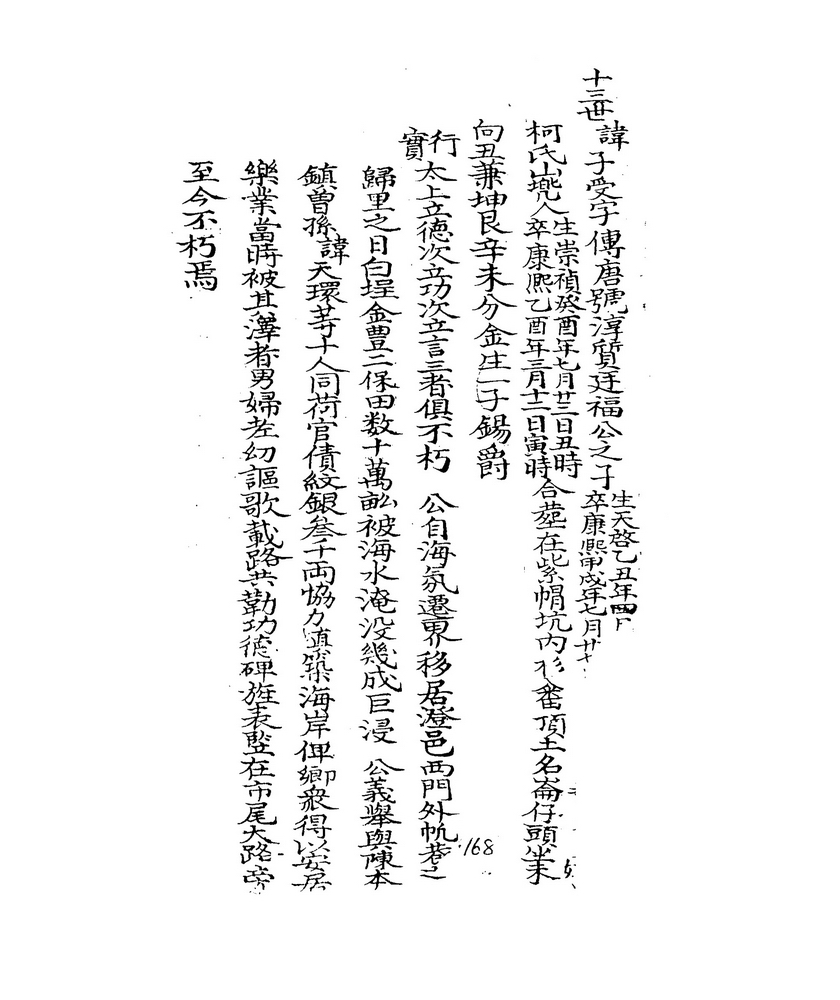 十三世諱子受字傳唐號淳質廷福公之子生天啓乙丑年四月
卒康熙甲戌年七月廿
柯氏㙈人生崇禎癸酉年七月廿三日丑時
卒康熙乙酉年三月十二日寅時合塟在紫帽坑內杉畬頂土名崙仔頭坐未
向丑兼坤艮辛未分金生一子錫爵
行實太上立德次立功次立言三者俱不朽 公自海氛遷界移居澄邑西門外帆巷之
歸里之日白埕金豊二保田数十萬畝被海水淹没幾成巨浸 公義舉與陳本
鎮曽孫諱天環等十人同荷官債紋銀叁千両協力填築海岸俾鄉衆得以安居
樂業當時被其澤者男婦老幼謳歌載路共勒功德碑旌表竪在市尾大路旁
至今不朽焉
168